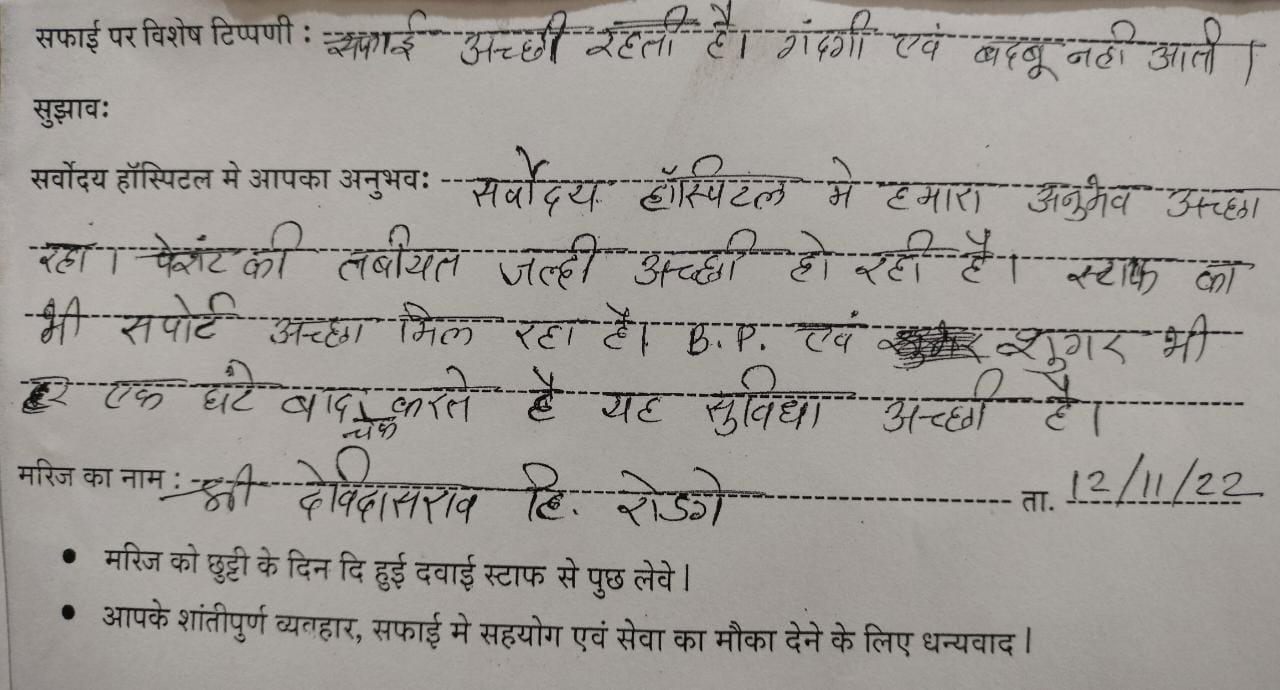 सफाई पर विशेष टिप्पणी : सफाई अच्छी रहती है। गंदगी एवं बदबू नही आती।
सुझाव:
सर्वोदय हॉस्पिटल मे आपका अनुभव: सर्वोदय हॉस्पिटल मे हमारा अनुभव अच्छा
रहा। पेशंट की तबीयत जल्दी अच्छी हो रही है। स्टाफ का
भी सपोर्ट अच्छा मिल रहा है। B.P. एवं शुगर भी
हर एक घंटे बाद चेक करते है यह सुविधा अच्छी है।
मरिज का नाम : श्री देविदासराव हि. रोडगे ता. 12/11/22
• मरिज को छुट्टी के दिन दि हुई दवाई स्टाफ से पुछ लेवे।
• आपके शांतीपुर्ण व्यवहार, सफाई मे सहयोग एवं सेवा का मौका देने के लिए धन्यवाद।